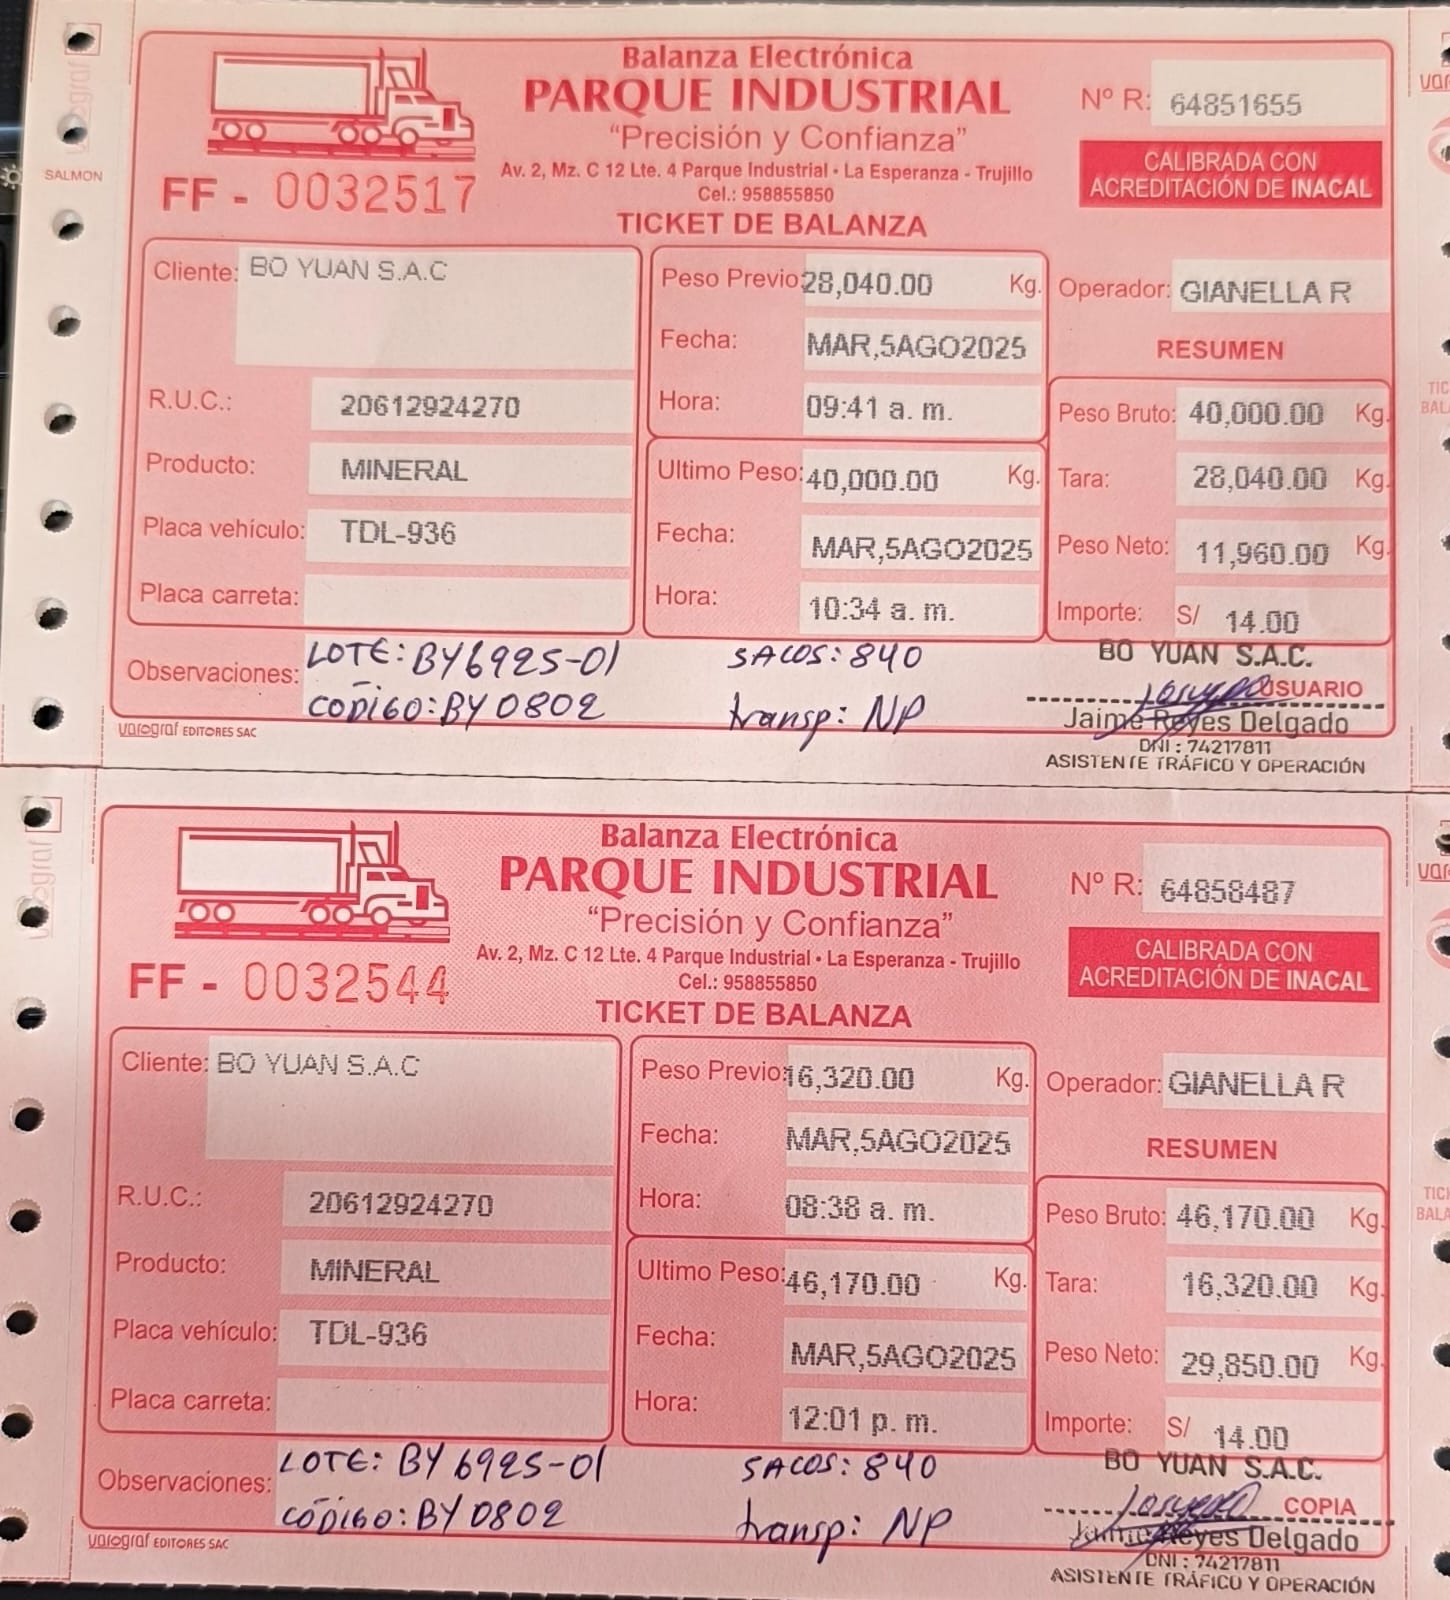 SALMON
Balanza Electrónica
PARQUE INDUSTRIAL
“Precisión y Confianza”
Av. 2, Mz. C 12 Lte. 4 Parque Industrial • La Esperanza - Trujillo
Cel.: 958855850
TICKET DE BALANZA
FF - 0032517
Nº R: 64851655
CALIBRADA CON
ACREDITACIÓN DE INACAL
Cliente: BO YUAN S.A.C
R.U.C.: 20612924270
Producto: MINERAL
Placa vehículo: TDL-936
Placa carreta:
Peso Previo: 28,040.00 Kg.
Fecha: MAR,5AGO2025
Hora: 09:41 a. m.
Ultimo Peso: 40,000.00 Kg.
Fecha: MAR,5AGO2025
Hora: 10:34 a. m.
Operador: GIANELLA R
RESUMEN
Peso Bruto: 40,000.00 Kg.
Tara: 28,040.00 Kg.
Peso Neto: 11,960.00 Kg.
Importe: S/ 14.00
Observaciones: LOTE: BY6925-01 SACOS: 840
CÓDIGO: BY0802 transp: NP
BO YUAN S.A.C.
USUARIO
Jaime Reyes Delgado
DNI : 74217811
ASISTENTE TRÁFICO Y OPERACIÓN
varograf EDITORES SAC
Balanza Electrónica
PARQUE INDUSTRIAL
“Precisión y Confianza”
Av. 2, Mz. C 12 Lte. 4 Parque Industrial • La Esperanza - Trujillo
Cel.: 958855850
TICKET DE BALANZA
FF - 0032544
Nº R: 64858487
CALIBRADA CON
ACREDITACIÓN DE INACAL
Cliente: BO YUAN S.A.C
R.U.C.: 20612924270
Producto: MINERAL
Placa vehículo: TDL-936
Placa carreta:
Peso Previo: 16,320.00 Kg.
Fecha: MAR,5AGO2025
Hora: 08:38 a. m.
Ultimo Peso: 46,170.00 Kg.
Fecha: MAR,5AGO2025
Hora: 12:01 p. m.
Operador: GIANELLA R
RESUMEN
Peso Bruto: 46,170.00 Kg.
Tara: 16,320.00 Kg.
Peso Neto: 29,850.00 Kg.
Importe: S/ 14.00
Observaciones: LOTE: BY6925-01 SACOS: 840
CÓDIGO: BY0802 transp: NP
BO YUAN S.A.C.
COPIA
Jaime Reyes Delgado
DNI : 74217811
ASISTENTE TRÁFICO Y OPERACIÓN
varograf EDITORES SAC